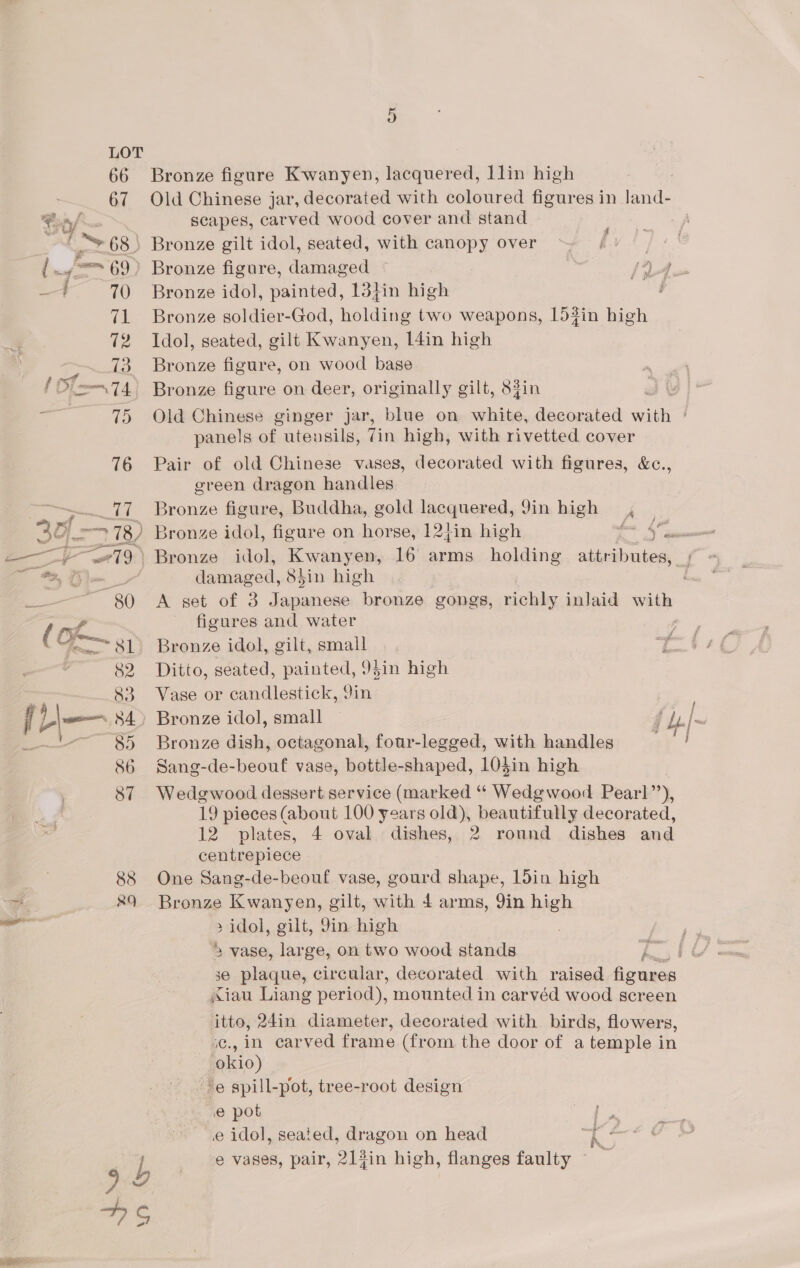 5
LOT
66 Bronze figure Kwanyen, lacquered, 11in high
67 Old Chinese jar, decorated with coloured figures in land-
scapes, carved wood cover and stand
68 Bronze gilt idol, seated, with canopy over
69 Bronze figure, damaged
70 Bronze idol, painted, 13¼in high
71 Bronze soldier-God, holding two weapons, 15¾in high
72 Idol, seated, gilt Kwanyen, 14in high
73 Bronze figure, on wood base
74 Bronze figure on deer, originally gilt, 8¾in
75 Old Chinese ginger jar, blue on white, decorated with
panels of utensils, 7in high, with rivetted cover
76 Pair of old Chinese vases, decorated with figures, &c.,
green dragon handles
77 Bronze figure, Buddha, gold lacquered, 9in high
30/- 78 Bronze idol, figure on horse, 12¼in high
79 Bronze idol, Kwanyen, 16 arms holding attributes,
damaged, 8½in high
80 A set of 3 Japanese bronze gongs, richly inlaid with
figures and water
81 Bronze idol, gilt, small
82 Ditto, seated, painted, 9½in high
83 Vase or candlestick, 9in
84 Bronze idol, small
85 Bronze dish, octagonal, four-legged, with handles
86 Sang-de-beouf vase, bottle-shaped, 10½in high
87 Wedgwood dessert service (marked “Wedgwood Pearl”),
19 pieces (about 100 years old), beautifully decorated,
12 plates, 4 oval dishes, 2 round dishes and
centrepiece
88 One Sang-de-beouf vase, gourd shape, 15in high
89 Bronze Kwanyen, gilt, with 4 arms, 9in high
idol, gilt, 9in high
vase, large, on two wood stands
se plaque, circular, decorated with raised figures
Kiau Liang period), mounted in carvéd wood screen
itto, 24in diameter, decorated with birds, flowers,
c., in carved frame (from the door of a temple in
okio)
e spill-pot, tree-root design
e pot
e idol, seated, dragon on head
e vases, pair, 21¾in high, flanges faulty